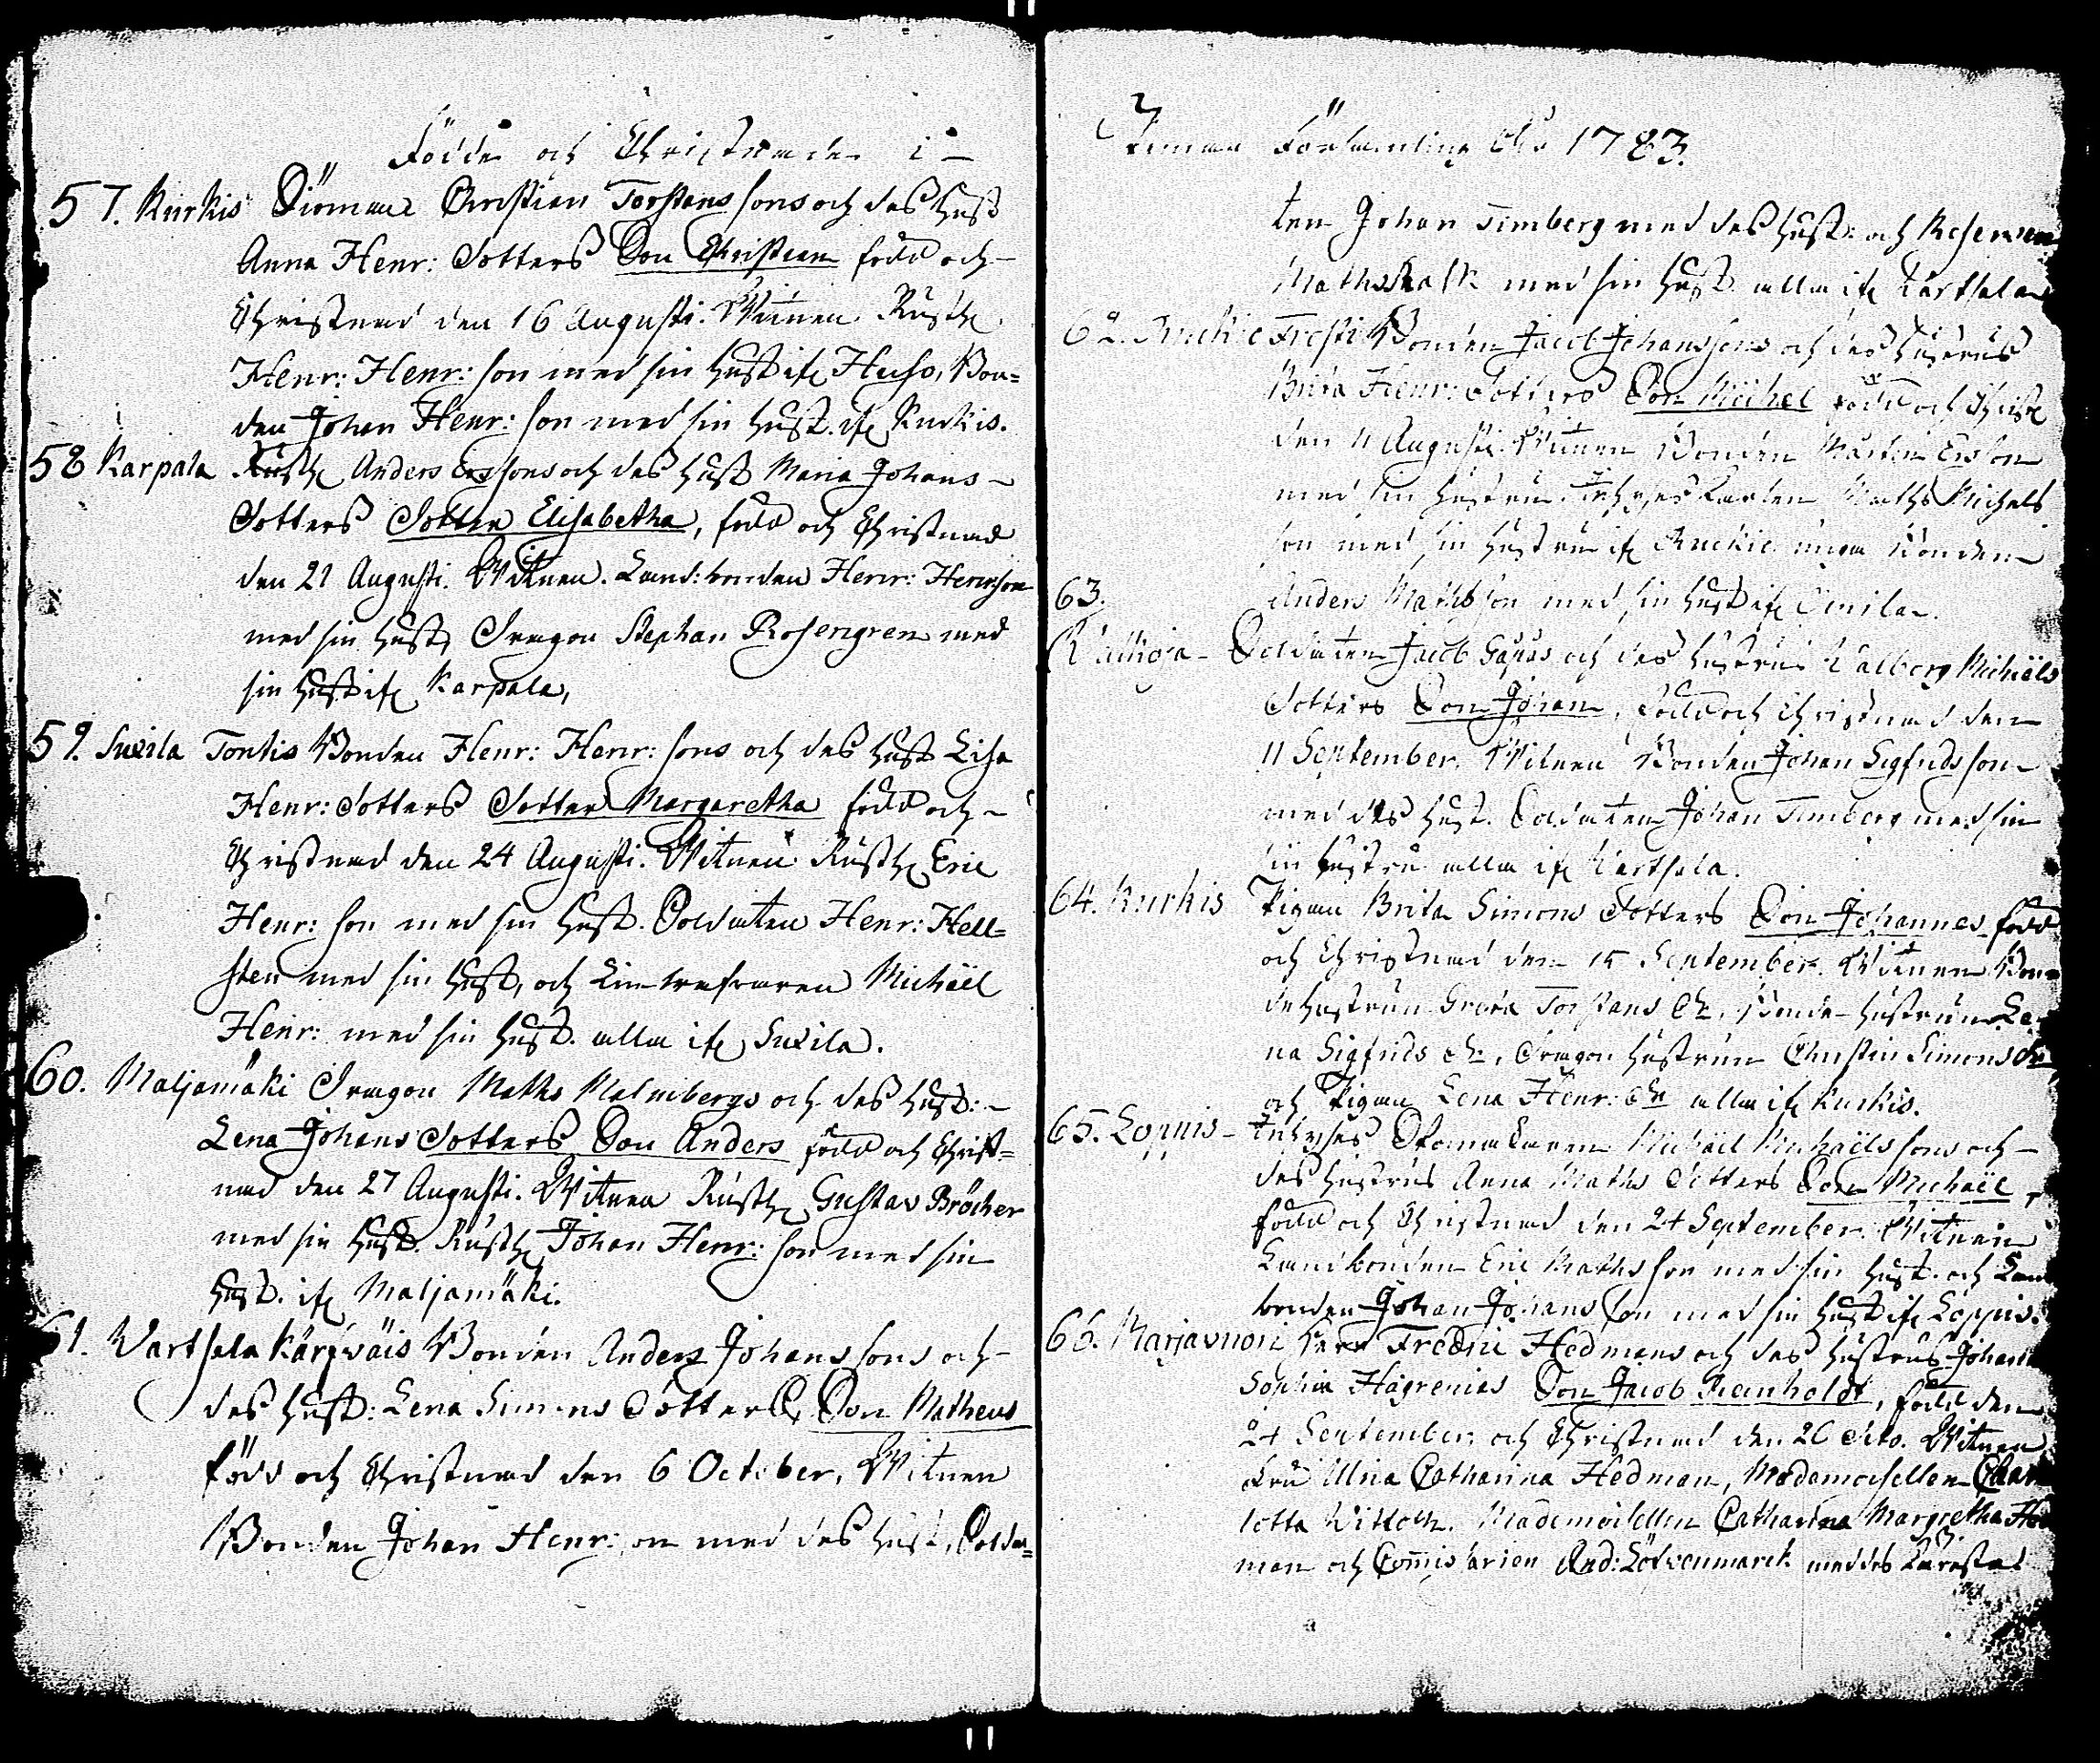 Födde och Christnade i
57. Kurkis Sörman Christian Torstens sons och des Hust
Anna Henr: dotters Son Christian född och
Christnad den 16 Augusti. Witnen Rusth
Henr: Henr: son med sin Hust if Huso, Bon=
den Johan Henr: son med sin Hust. if Kurkis.
58 Karpala Rusth Anders Ers sons och des Hust Maria Johans
dotters dotter Elisabetha, född och Christnad
den 21 Augusti. Witnen. Land: bonden Henr: Henrson
med sin Hust, Dragon Stephan Rosengren med
sin Hust if Karpala,
59. Suxila Tontis Bonden Henr: Henr: sons och des Hust Lisa
Henr: dotters dotter Margaretha född och
Christnad den 24 Augusti. Witnen Rusth Eric
Henr: son med sin Hust. Soldaten Henr: Hell=
sten med sin Hust, och Michaël
Henr: med sin Hust. alla if Suxila.
60. Maljamäki Dragon Maths Malmbergs och des Hust:
Lena Johans dotters Son Anders född och Christ=
nad den 27 Augusti. Witnen Rusth Gustav Bröcher
med sin Hust. Rusth Johan Henr: son med sin
Hust. if Maljamäki.
61. Wartsala Bonden Anders Johans sons och
des Hust: Lena Simons dotters Son Matheus
född och Christnad den 6 October, Witnen
Bonden Johan Henr: son med des Hust, Solda=
Kiumo Församling Åhr 1783.
ten Johan Timberg med des Hust: och
Maths med sin Hust. alla if Wartsala
62. Ruckic Tresti Bonden Jacob Johanssons och des Hustrus
Brita Henr: dotters Son Michel född och Christ
den 11 Augusti. Witnen Bonden Mårten Ersson
med sin Hustru. Maths Michels
son med sin Hustru if Ruckic Bonden
63. Anders Mathsson med sin Hust if
Soldaten Jacob och des Hustrus Walborg Michaëls
dotters Son Johan, född och Christnad den
11 September. Witnen Bonden Johan Sigfrids son
med des Hust. Soldaten Johan Timberg med sin
sin Hustru alla if Wartsala.
64. Kurkis Pigan Brita Simons dotters Son Johannes född
och Christnad den 15 September. Witnen Bon
de hustrun Greta Torstens dr. Bonde hustrun Le
na Sigfrids dr, Dragon hustrun Christin Simons dr
och Pigan Lena Henr: dr alla if Kurkis.
65. Loppis Michaël Michaëls sons och
des Hustrus Anna Maths dotters Son Michaël,
född och Christnad den 24 September. Witnen
Landbonden Eric Maths son med sin Hust. och Land
bonden Johan Johans son med sin Hust if Loppis.
66. Marjavuori Herr Fredric Hedmans och des Hustrus Johanna
Sophia Hagrenias Son Jacob Reinholdt, född den
24 September och Christnad den 26 dito. Witnen
Fru Ulrica Catharina Hedman, Mademoisellen Char
lotta Mademoisellen Catharina Margretha Hed
man och Commissarien And: Löfvenmarck med des Käresta